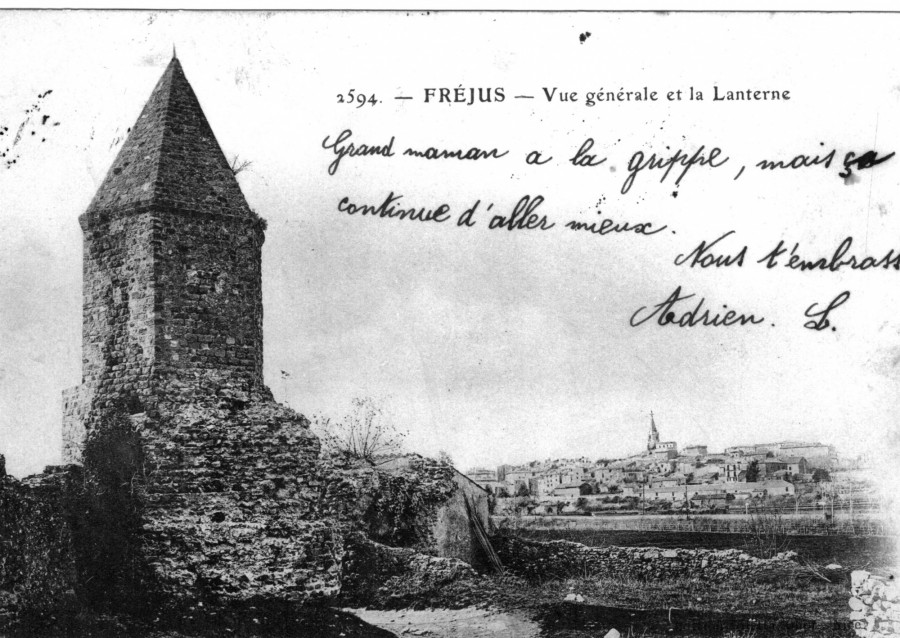 2594. — FRÉJUS — Vue générale et la Lanterne
Grand maman a la grippe, mais ça
continue d'aller mieux.
Nous t'embrass
Adrien. L.